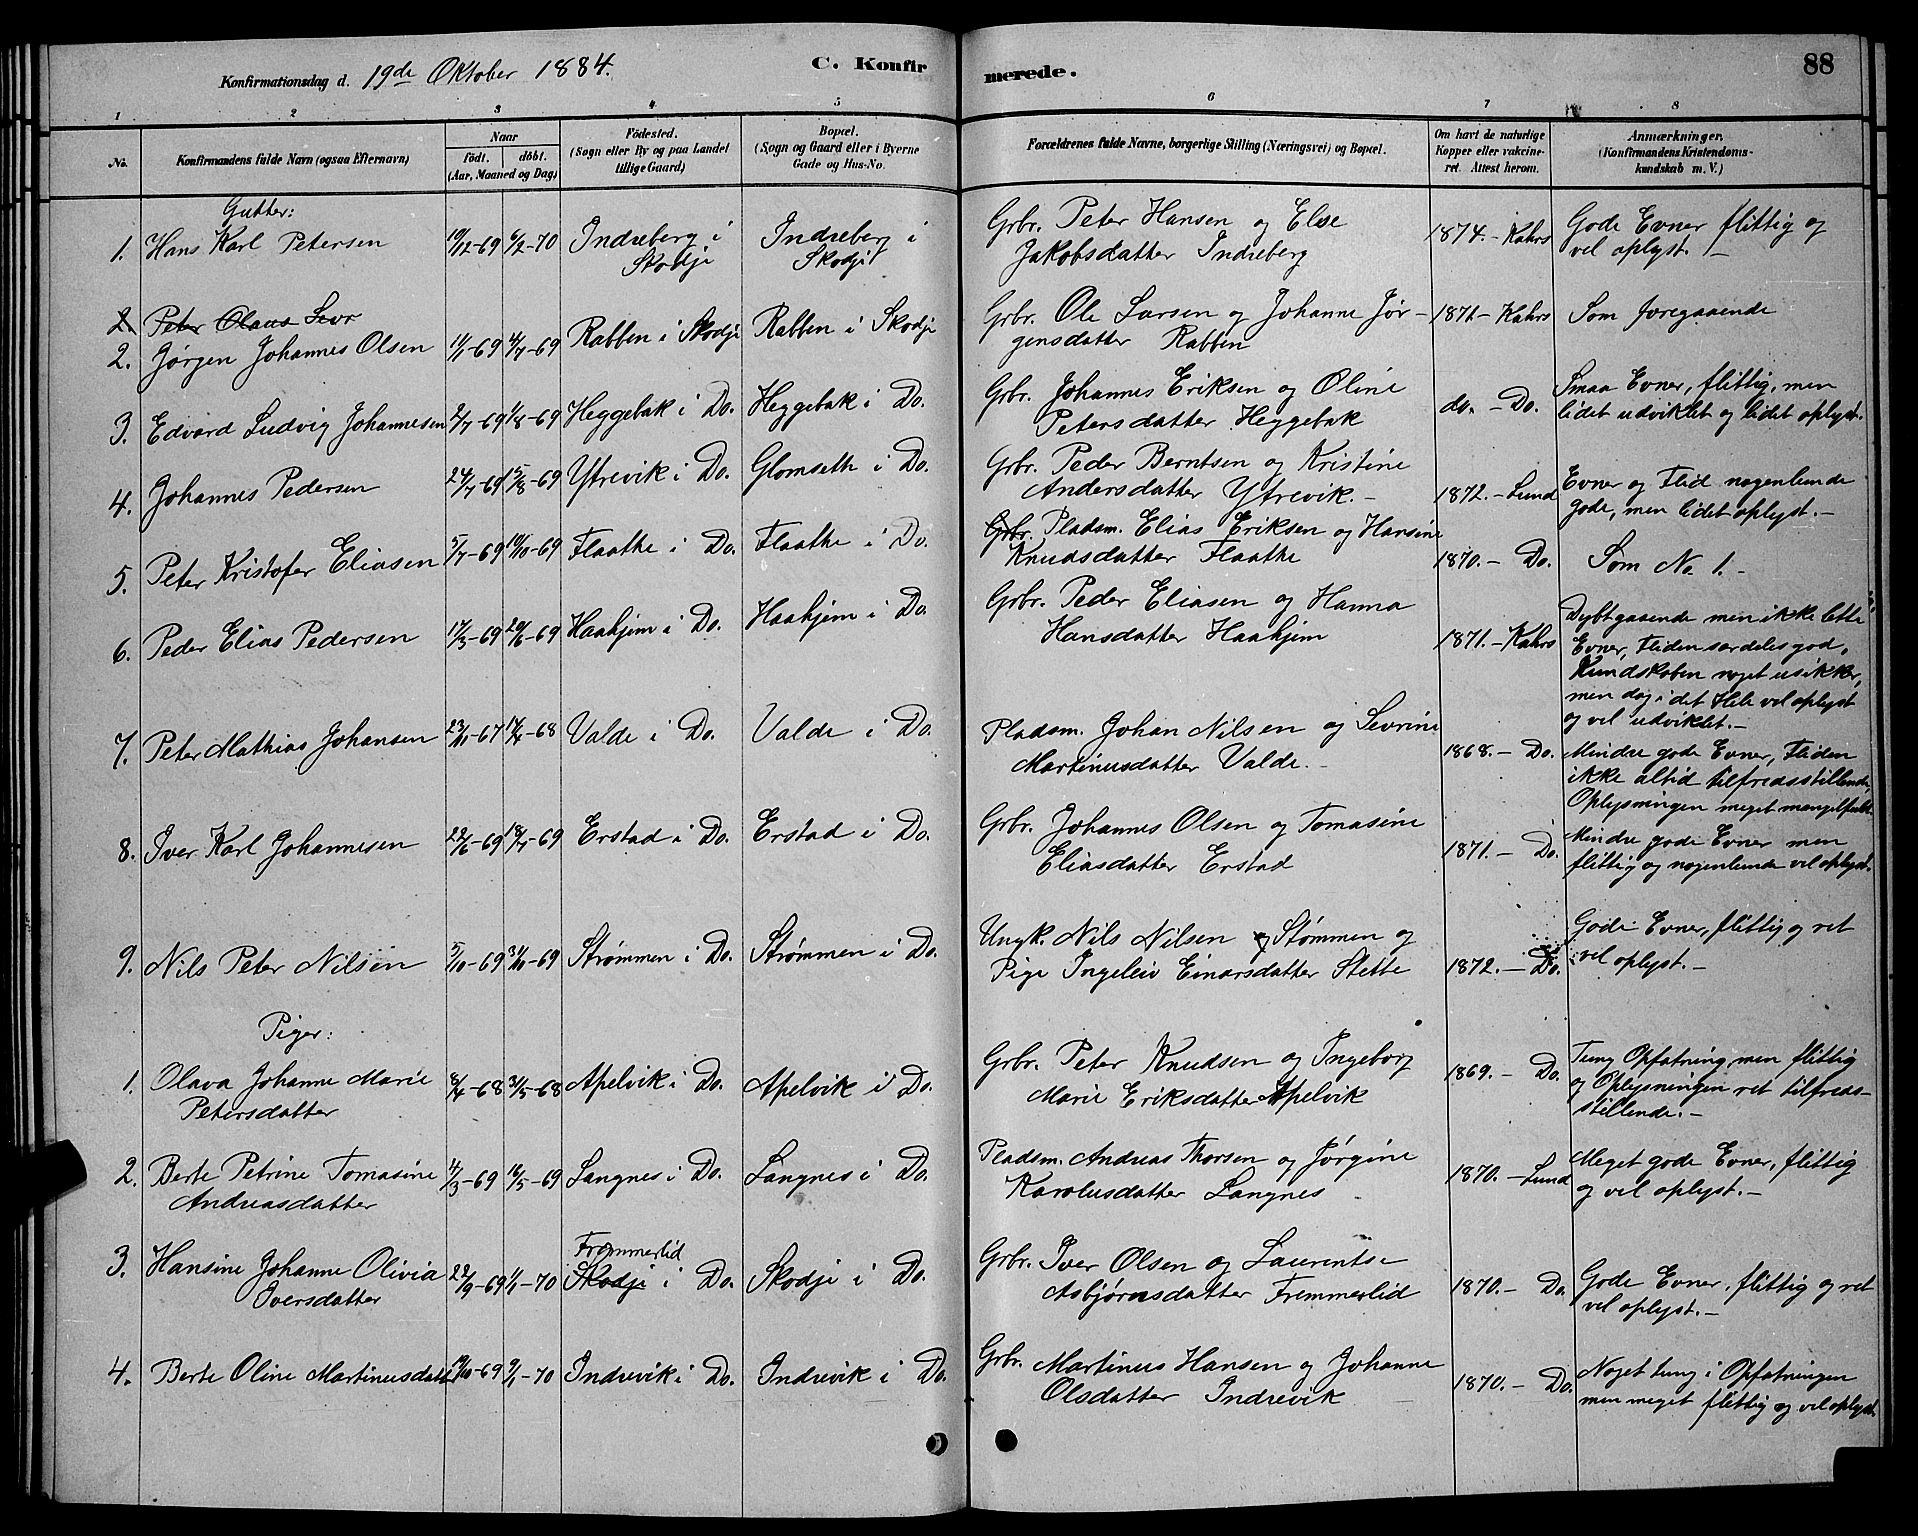 Konfirmationsdag d. 19de Oktober 1884.
C. Konfirmerede.
88
1 2 3 4 5 6 7 8
No.
Konfirmandens fulde Navn (ogsaa Efternavn)
Naar
födt. döbt.
(Aar, Maaned og Dag)
Födested.
(Sogn eller By og paa Landet
tillige Gaard)
Bopæl.
(Sogn og Gaard eller i Byerne
Gade og Hus-No.
Forældrenes fulde Navne, borgerlige Stilling (Næringsvei) og Bopæl.
Om havt de naturlige
Kopper eller vakcine-
ret. Attest herom.
Anmærkninger.
(Konfirmandens Kristendoms-
kundskab m. V.)
Gutter:
1. Hans Karl Petersen 19/12-69 6/2-70 Indreberg i Skodji Indreberg i Skodji
Grbr. Peter Hansen og Else
Jakobsdatter Indreberg
1874. - Kahrs
Gode Evner flittig og
vel oplyst. -
2. Peter Olaus Sevr
2. Jørgen Johannes Olsen 11/1-69 4/7-69 Rabben i Skodji Rabben i Skodje
Grbr. Ole Larsen og Johanne Jør-
gensdatter Rabben
1871 - Kahrs
Som foregaaende
3. Edvard Ludvig Johannesen 2/7-69 1/8-69 Heggebak i Do. Heggebak i Do.
Grbr. Johannes Eriksen og Oline
Petersdatter Heggebak
do. - Do.
Smaa Evner, flittig, men
lidet udviklet og lidet oplyst.
4. Johannes Pedersen 24/7-69 15/8-69 Ytrevik i Do. Glomseth i Do.
Grbr. Peder Berntsen og Kristine
Andersdatter Ytrevik. -
1872. - Lund
Evner og Flid nogenlunde
gode, men lidet oplyst. -
5. Peter Kristofer Eliasen 5/7-69 10/10-69 Flaathe i Do. Flaathe i Do.
Grbr. Pladsm. Elias Eriksen og Hansine
Knudsdatter Flaathe
1870. - Do.
Som No 1. -
6. Peder Elias Pedersen 17/3-69 20/6-69 Haahjem i Do. Haahjem i Do.
Grbr. Peder Eliasen og Hanna
Hansdatter Haahjem
1871. - Kahrs
Dybtgaaende men ikke lette
Evner, Fliden særdeles god,
Kundskaben noget usikker,
men dog i det Hele vel oplyst
og vel udviklet. -
7. Peter Mathias Johansen 23/11-67 14/4-68 Valde i Do. Valde i Do.
Pladsm. Johan Nilsen og Sevrine
Martinusdatter Valde. -
1868. - Do.
Mindre gode Evner, Fliden
ikke altid tilfredsstillende,
Oplysningen meget mangelfuld.
8. Iver Karl Johannesen 22/6-69 18/7-69 Erstad i Do. Erstad i Do.
Grbr. Johannes Olsen og Tomasine
Eliasdatter Erstad
1871. - Do.
Mindre gode Evner men
flittig og nogenlunde vel oplyst.
9. Nils Peter Nilsen 5/10-69 31/10-69 Strømmen i Do. Strømmen i Do.
Ungk. Nils Nilsen Stømmen og
Pige Ingeleiv Einarsdatter Stette
1872. - Do.
Gode Evner, flittig og ret
vel oplyst. -
Piger:
1. Olava Johanne Marie
Petersdatter 8/4-68 31/5-68 Apelvik i Do. Apelvik i Do.
Grbr. Peter Knudsen og Ingeborg
Marie Eriksdatter Apelvik
1869. - Do.
Tung Opfatning, men flittig
og Oplysningen ret tilfreds-
stillende. -
2. Berte Petrine Tomasine
Andreasdatter 4/3-69 16/5-69 Langnes i Do. Langnes i Do.
Pladsm. Andreas Thorsen og Jørgine
Karolusdatter Langnes
1870. - Lund
Meget gode Evner, flittig
og vel oplyst. -
3. Hansine Johanne Olivia
Iversdatter 22/9-69 1/1-70 Frommerlid Skodji i Do. Skodje i Do.
Grbr. Iver Olsen og Laurentse
Asbjørnsdatter Fremmerlid
1870. - Do.
Gode Evner, flittig og ret
vel oplyst. -
4. Berte Oline Martinusdatt 19/10-69 9/1-70 Indrevik i Do. Indrevik i Do.
Grbr. Martinus Hansen og Johanne
Olsdatter Indrevik
1870. - Do.
Noget tung i Opfatningen
men meget flittig og vel oplyst.